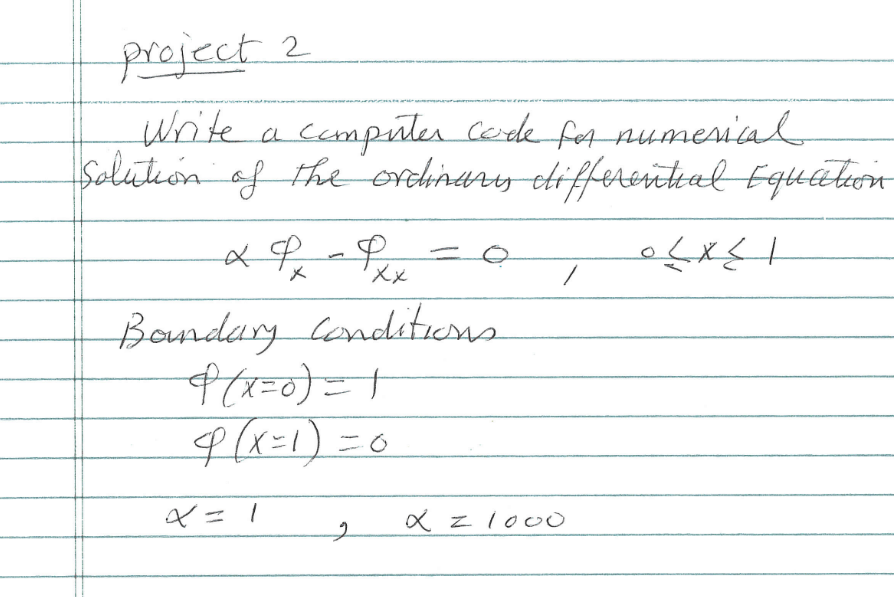 project 2
Write a computer code for numerical
Solution of the ordinary differential Equation
α φ_x - φ_xx = 0 , 0 ≤ x ≤ 1
Boundary Conditions
φ(x=0) = 1
φ(x=1) = 0
α = 1 , α = 1000